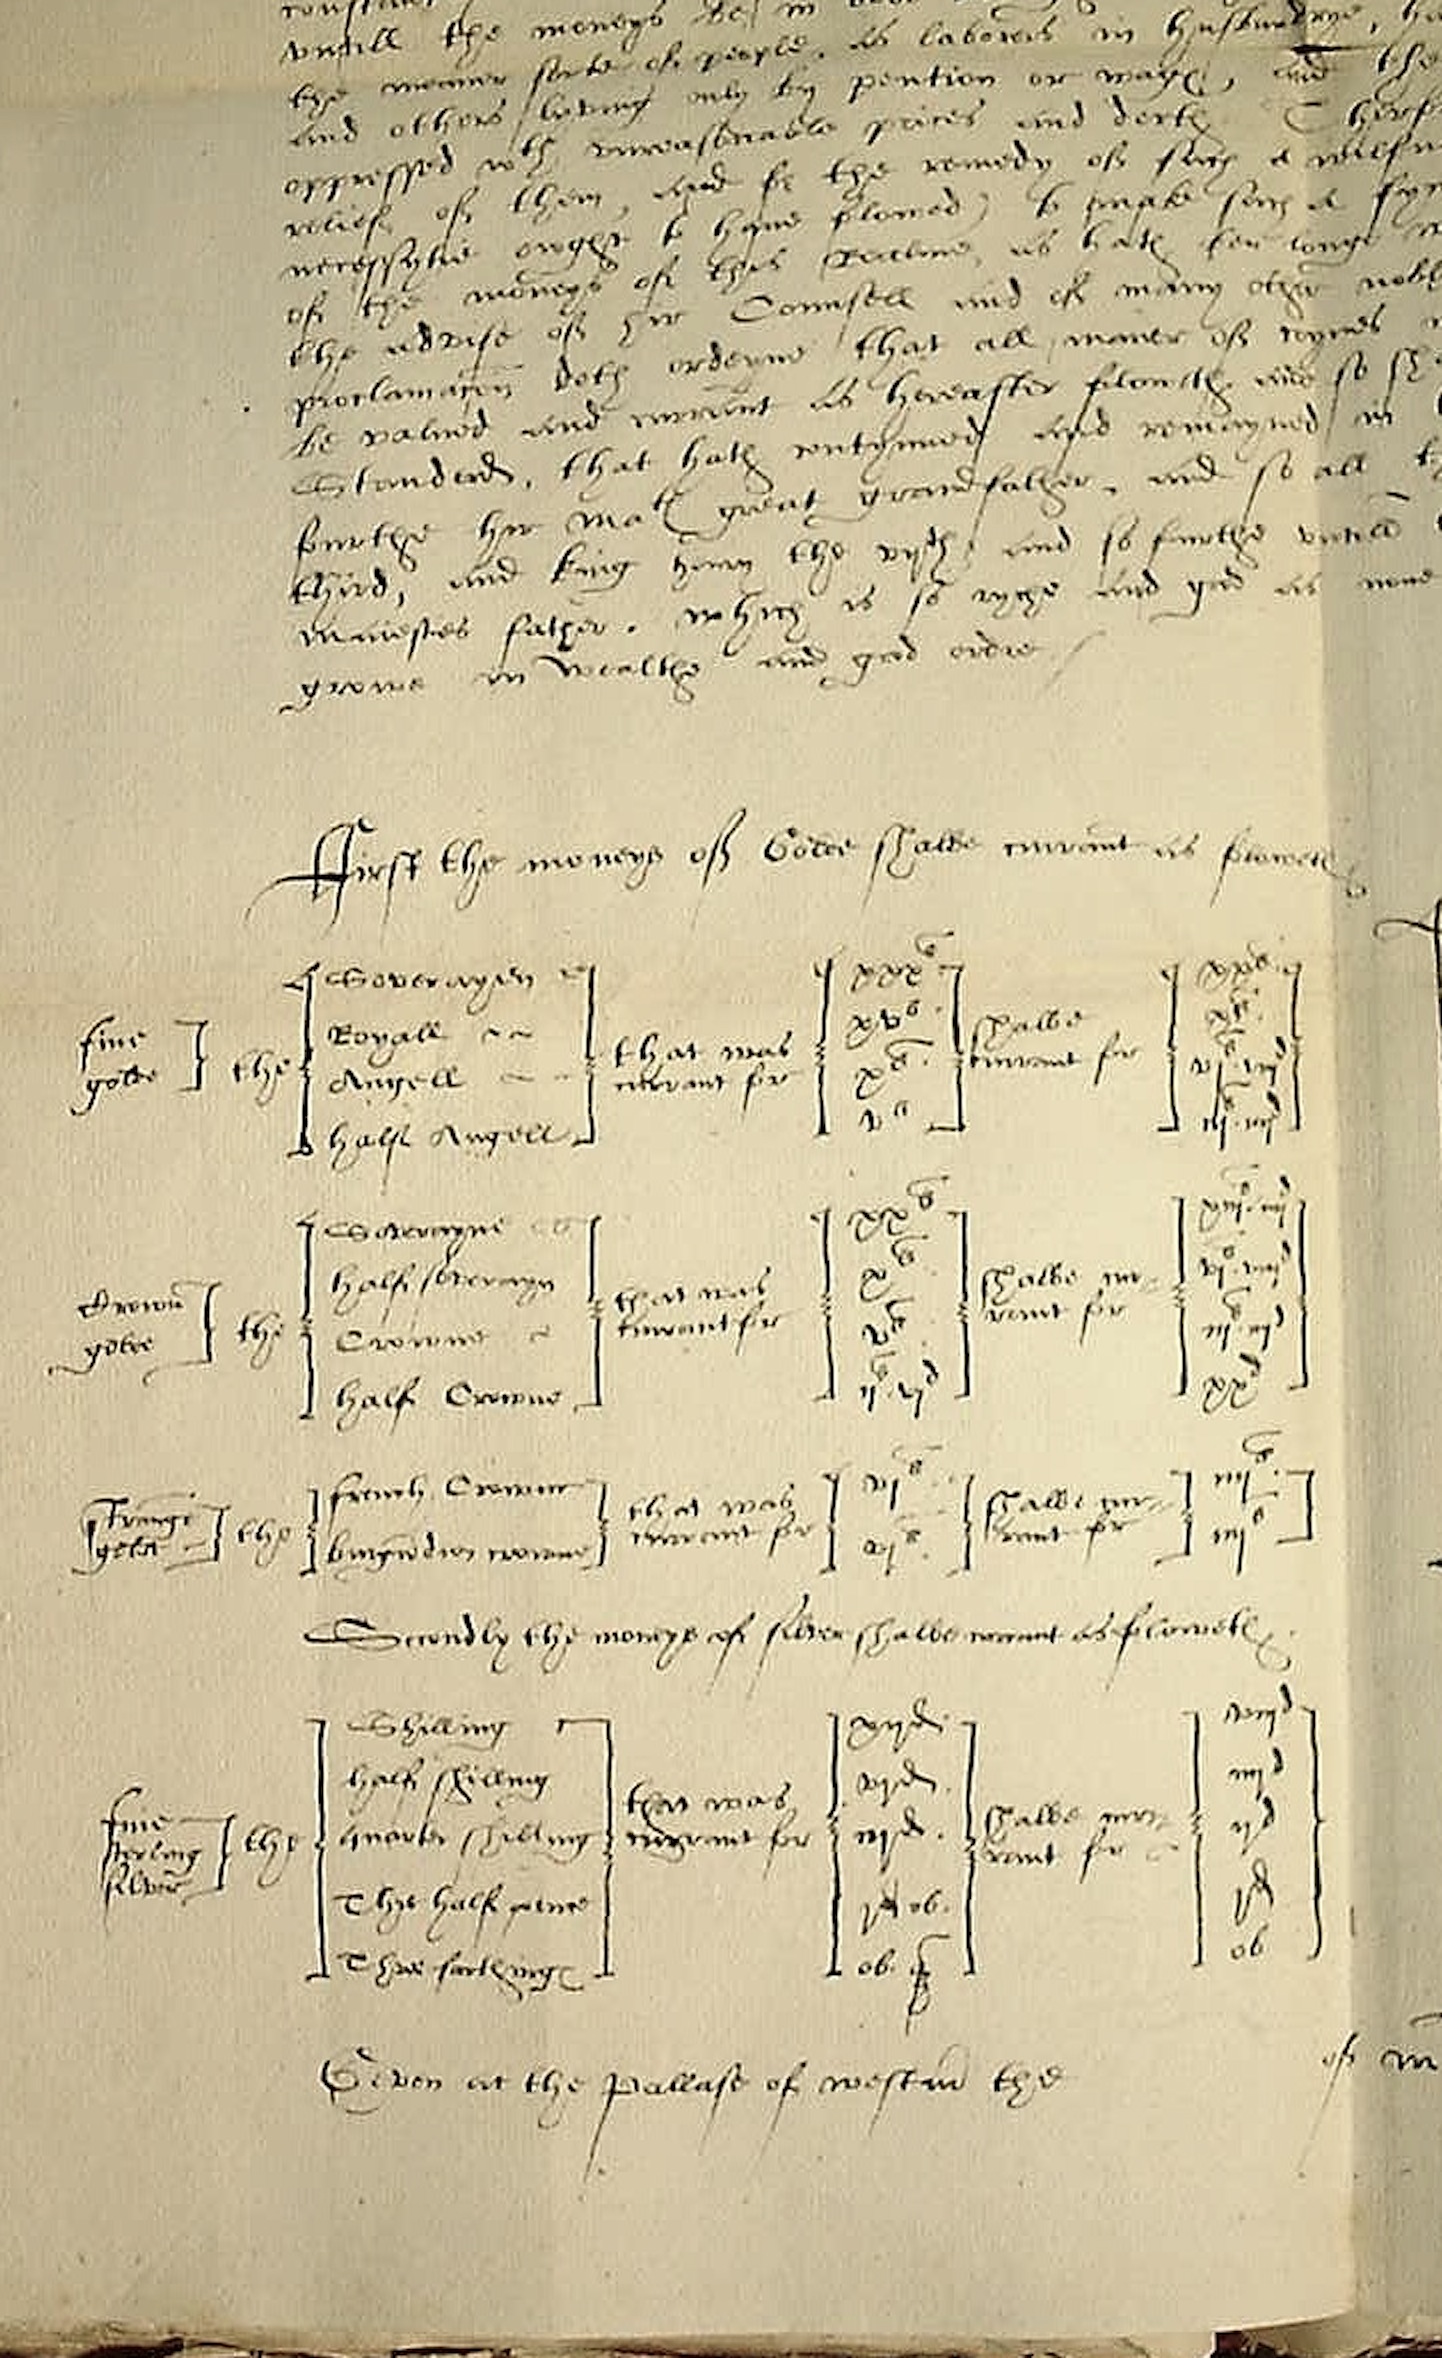 vntill the moneys be in
the meaner sorte of people, as laborers in husbandrye,
and others lyving only by pention or wage, and the
oppressed wth vnreasonable prices and derth
relief of them, and for the remedy of such a
necessytie ought to haue folowed) to make such a
of the moneys of this Realme, as hath ben longe
the advise of hir Counsell and of many other noble
proclamacon doth ordeyne that all maner of coynes
be valued and currant as hereafter foloweth, and so
Standerd, that hath contynued and remayned in
fourthe hir Mats great grandfather, and so all
third, and king henry the vijth, and so furthe vntill
maiesties father. which is so ryche and good as none
growe in wealthe and good ordre
First the moneys of Golde shalbe currant as foloweth
fine golde the
Soverayn
Royall
Angell
half Angell
that was currant for
xxxs
xvs
xs
vs
shalbe currant for
xxs
xs
vjs. viijd
iijs. iiijd
Crown golde the
Soverayne
half soverayn
Crowne
half Crowne
that was currant for
xxs
xs
vs
ijs. vjd
shalbe currant for
xiijs. iiijd
vjs. viijd
iijs. iiijd
xxd
strange golde the
french Crowne
burgundion crowne
that was currant for
vjs
vjs
shalbe currant for
iiijs
iiijs
Secondly the moneys of silver shalbe currant as foloweth
fine sterling silver the
Shilling
half shilling
quarter shilling
Thre half pence
Thre farthings
that was currant for
xijd.
vjd.
iijd.
jd ob.
ob. q
shalbe currant for
viijd
iiijd
ijd
jd
ob
Geven at the Pallase of westm the of